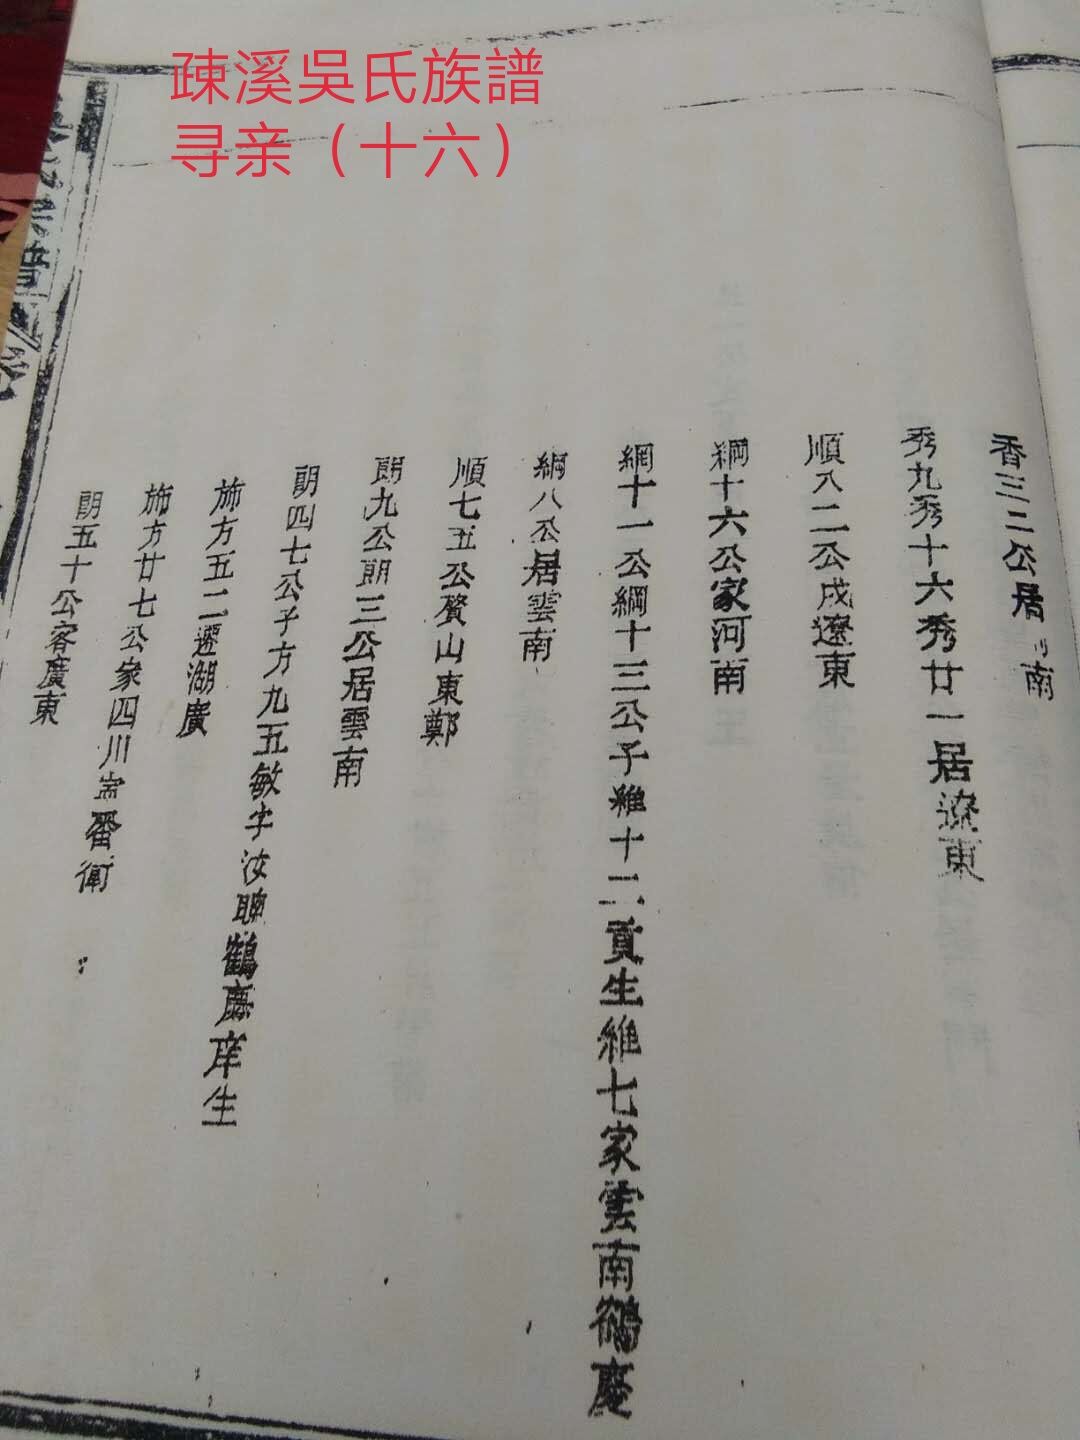 疎溪吳氏族譜
寻亲（十六）
香三二公居南
秀九秀十六秀廿一居遼東
順八二公戍遼東
綱十六公家河南
綱十一公綱十三公子維十二貢生維七家雲南鶴慶
綱八公居雲南
順七五公贅山東鄭
朗九公朗三公居雲南
朗四七公子方九五敏字汝聰鶴慶庠生
施方五二遷湖廣
施方廿七公家四川番衛
朗五十公客廣東
吳氏宗譜 卷